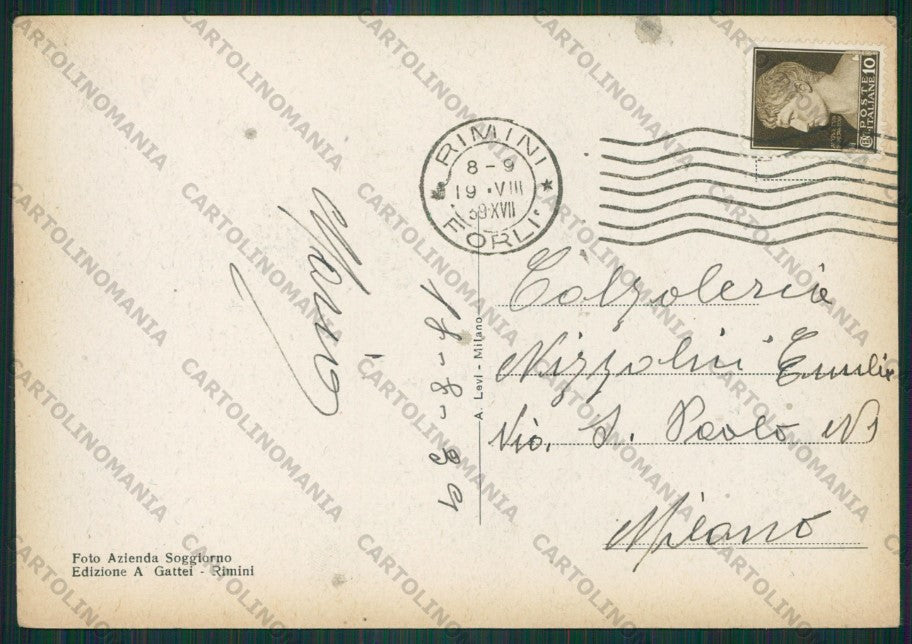 10
POSTE ITALIANE
RIMINI
8-9
19·VIII
39·XVII
FORLI'
Calzoleria
Nizzolini Emilio
Via. S. Paolo N 1
Milano
Maria
18-8-39
A. Levi - Milano
Foto Azienda Soggiorno
Edizione A Gattei - Rimini
CARTOLINOMANIA